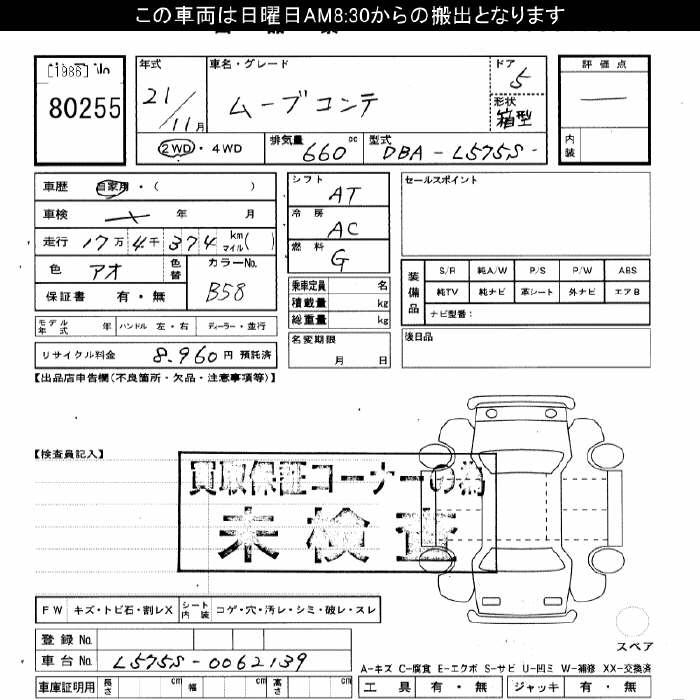 この車両は日曜日AM8:30からの搬出となります
[1986] No
80255
年式 車名・グレード ドア 評価点
21/11月 ムーブコンテ 5 ―
形状 箱型
②WD・4WD 排気量 660 cc 型式 DBA-L575S- 内装
車歴 自家用・( ) シフト AT セールスポイント
車検 年 月 冷房 AC
走行 17万 4千 374 km マイル( ) 燃料 G
色 アオ 色替 カラーNo. B58
保証書 有・無
乗車定員 名
積載量 kg
総重量 kg
装備品 S/R 純A/W P/S P/W ABS
純TV 純ナビ 革シート 外ナビ エアB
ナビ型番:
モデル年式 年 ハンドル 左・右 ディーラー・並行
名変期限 月 日
後日品
リサイクル料金 8,960 円 預託済
【出品店申告欄(不良箇所・欠品・注意事項等)】
【検査員記入】
買取保証コーナーの為
未検査
FW キズ・トビ石・割レX シート内装 コゲ・穴・汚レ・シミ・破レ・スレ
スペア
登録 No.
車台 No. L575S-0062139
A-キズ C-腐食 E-エクボ S-サビ U-凹ミ W-補修 XX-交換済
車庫証明用 長さ cm 幅 cm 高さ cm 工具 有・無 ジャッキ 有・無